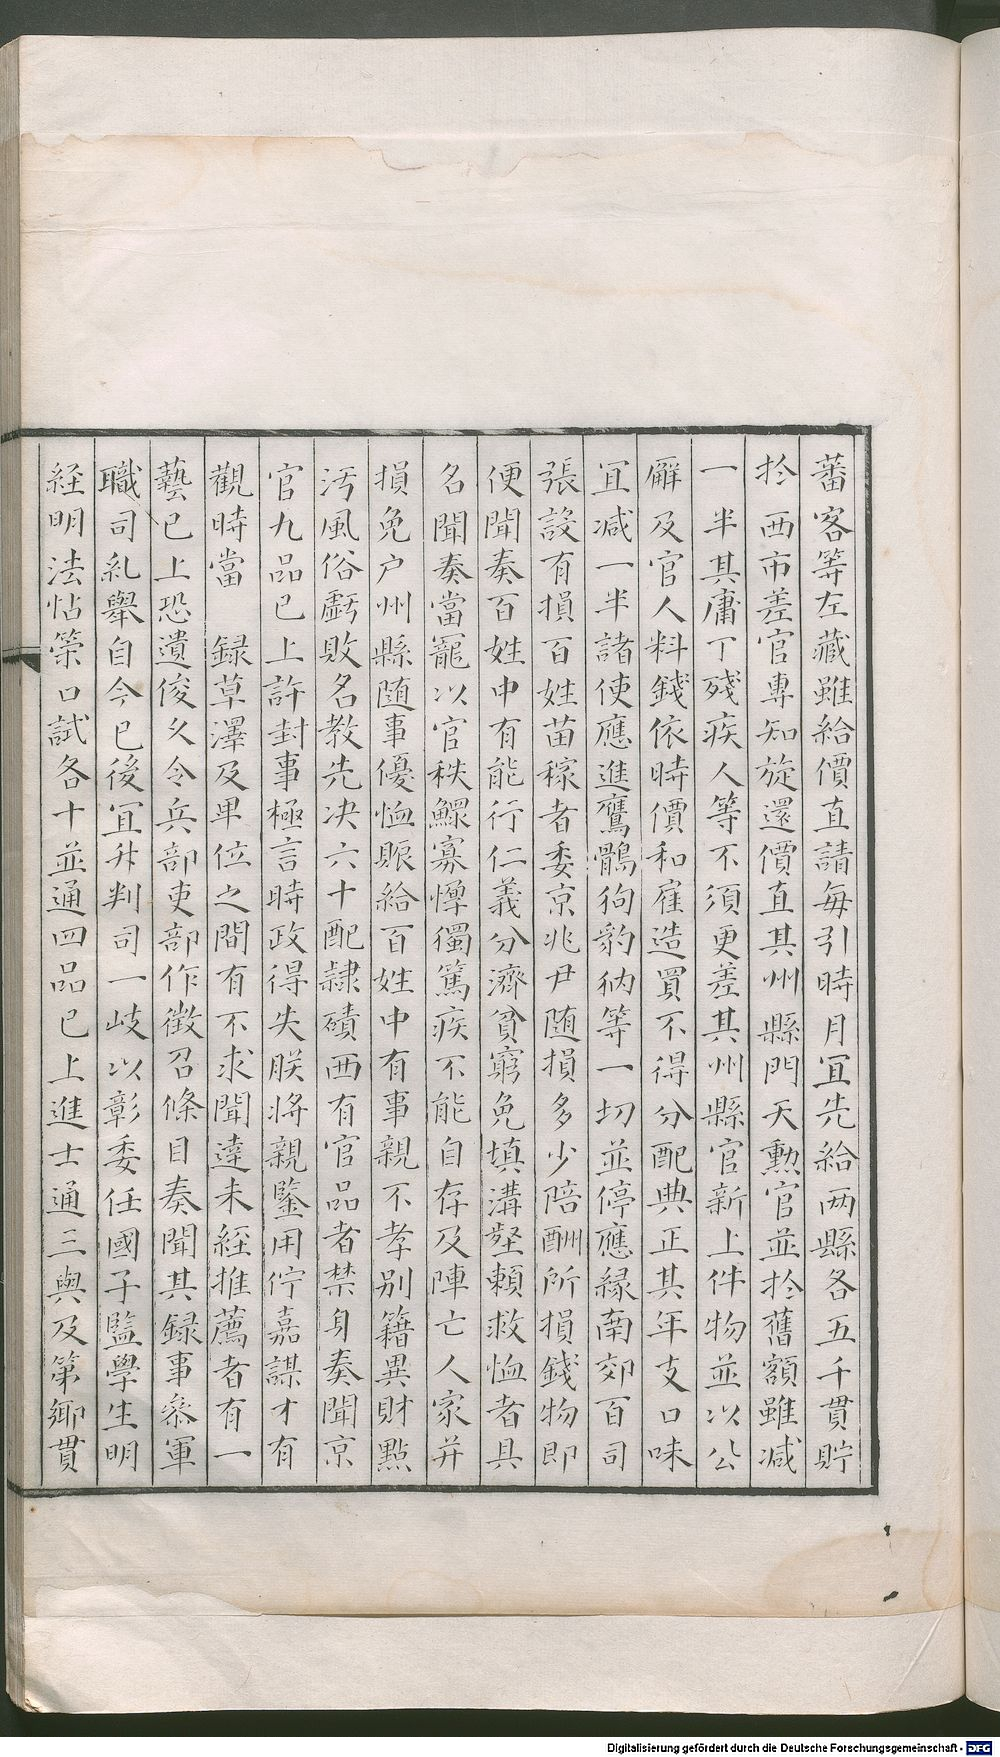 蕃客等左藏雖給價直請每引時月冝先給两縣各五千貫貯
扵西市差官專知旋還價直其州縣門夫勲官並扵舊額雖减
一半其庸丁殘疾人等不須更差其州縣官新上件物並以公
廨及官人料錢依時價和雇造買不得分配典正其年支口味
冝减一半諸使應進鷹鶻狗豹䄛等一切並停應緣南郊百司
張設有損百姓苗稼者委京兆尹随損多少陪酬所損錢物即
便聞奏百姓中有能行仁義分濟貧窮免填溝壑賴救恤者具
名聞奏當寵以官秩鰥寡惸獨篤疾不能自存及陣亡人家并
損免户州縣随事優恤賑給百姓中有事親不孝別籍異財㸃
汚風俗虧敗名教先决六十配隷磧西有官品者禁身奏聞京
官九品已上許封事極言時政得失朕將親鑒用佇嘉謀才有
觀時當　録草澤及卑位之間有不求聞達未經推薦者有一
藝已上恐遺俊乂令兵部吏部作徴召條目奏聞其録事叅軍
職司糺舉自今已後冝升判司一岐以彰委任國子監學生明
経明法帖策口試各十並通四品已上進士通三與及第鄉貫
Digitalisierung gefördert durch die Deutsche Forschungsgemeinschaft - DFG